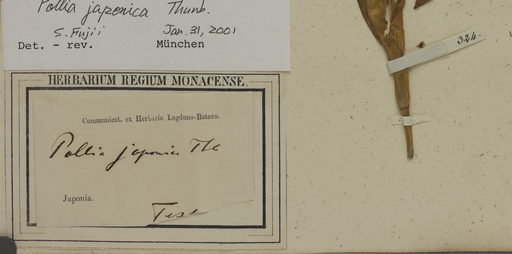 Pollia japonica Thunb.
S. Fujii Jan. 31, 2001
Det. - rev. München
324.
HERBARIUM REGIUM MONACENSE.
Communicat. ex Herbario Lugduno-Batavo.
Pollia japonica Th
Japonia.